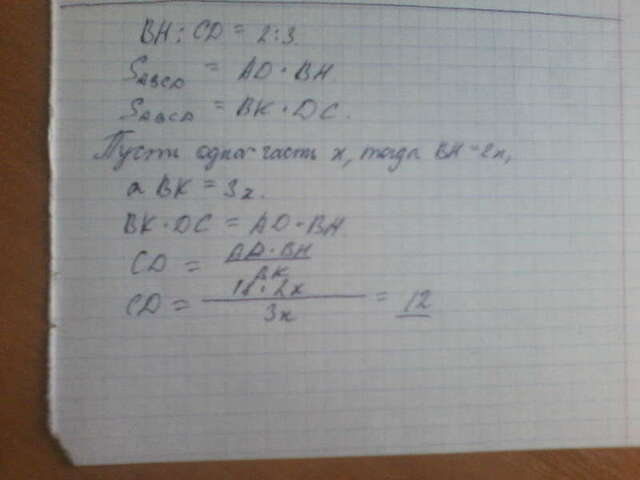 BH : CD = 2:3.
SABCD = AD · BH
SABCD = BK · DC.
Пусть одна часть x, тогда BH = 2x,
а BK = 3x.
BK · DC = AD · BH
CD = AD · BH / BK
CD = 18 · 2x / 3x = 12